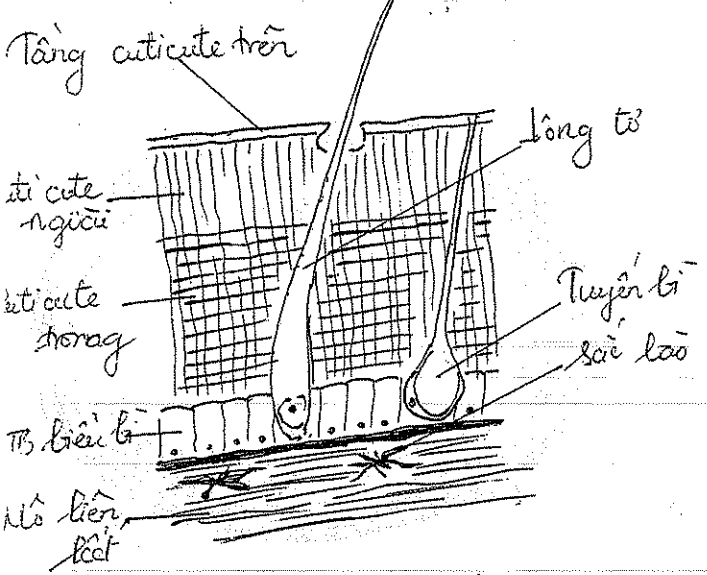 Tầng cuticute trên
lông tơ
uticute
ngoài
uticute
trong
Tuyến bì
sắc bào
TB biểu bì
Mô liên
kết